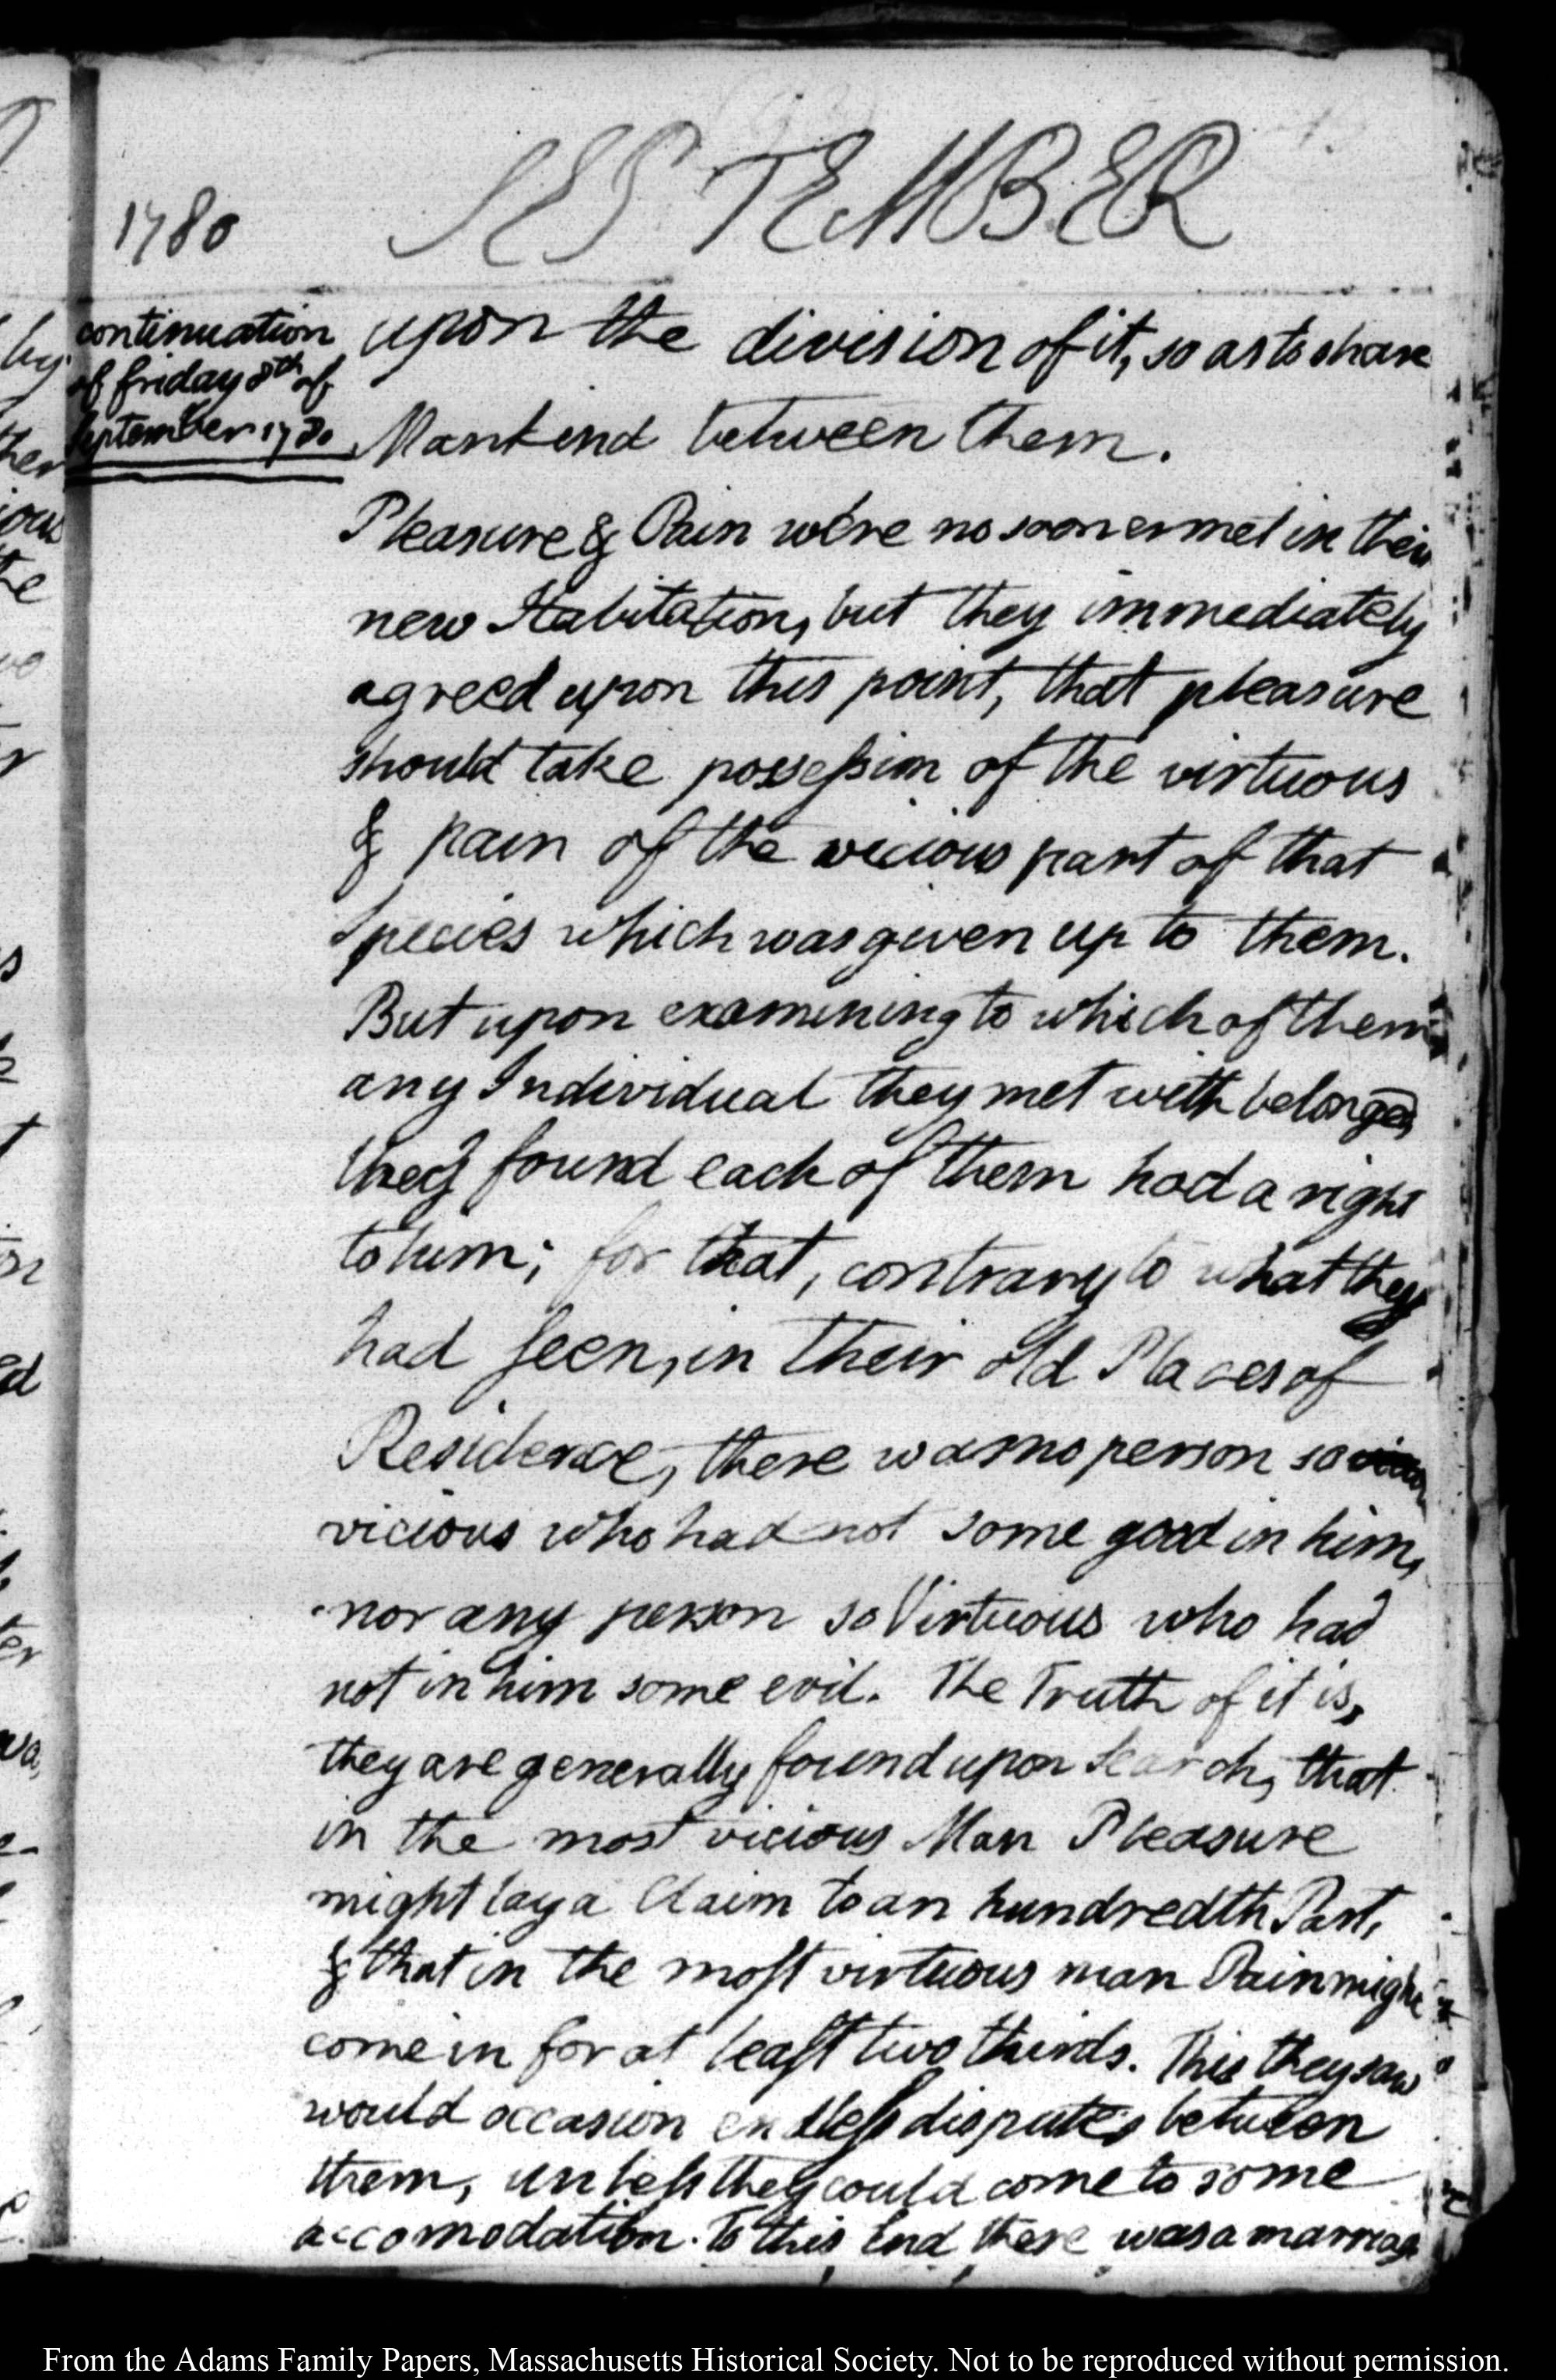 1780
SEPTEMBER
continuation
of friday 8th of
September 1780
upon the division of it, so as to share
Mankind between them.
Pleasure & Pain were no sooner met in their
new Habitation, but they immediately
agreed upon this point, that pleasure
should take possession of the virtuous
& pain of the vicious part of that
Species which was given up to them.
But upon examining to which of them
any Individual they met with belonged
they found each of them had a right
to him; for that, contrary to what they
had seen, in their old Places of
Residence, there was no person so
vicious who had not some good in him,
nor any person so Virtuous who had
not in him some evil. The Truth of it is,
they are generally found upon Search, that
in the most vicious Man Pleasure
might lay a Claim to an hundredth Part,
& that in the most virtuous man Pain might
come in for at least two thirds. This they saw
would occasion endless disputes between
them, unless they could come to some
accomodation. To this End there was a marriage
From the Adams Family Papers, Massachusetts Historical Society. Not to be reproduced without permission.